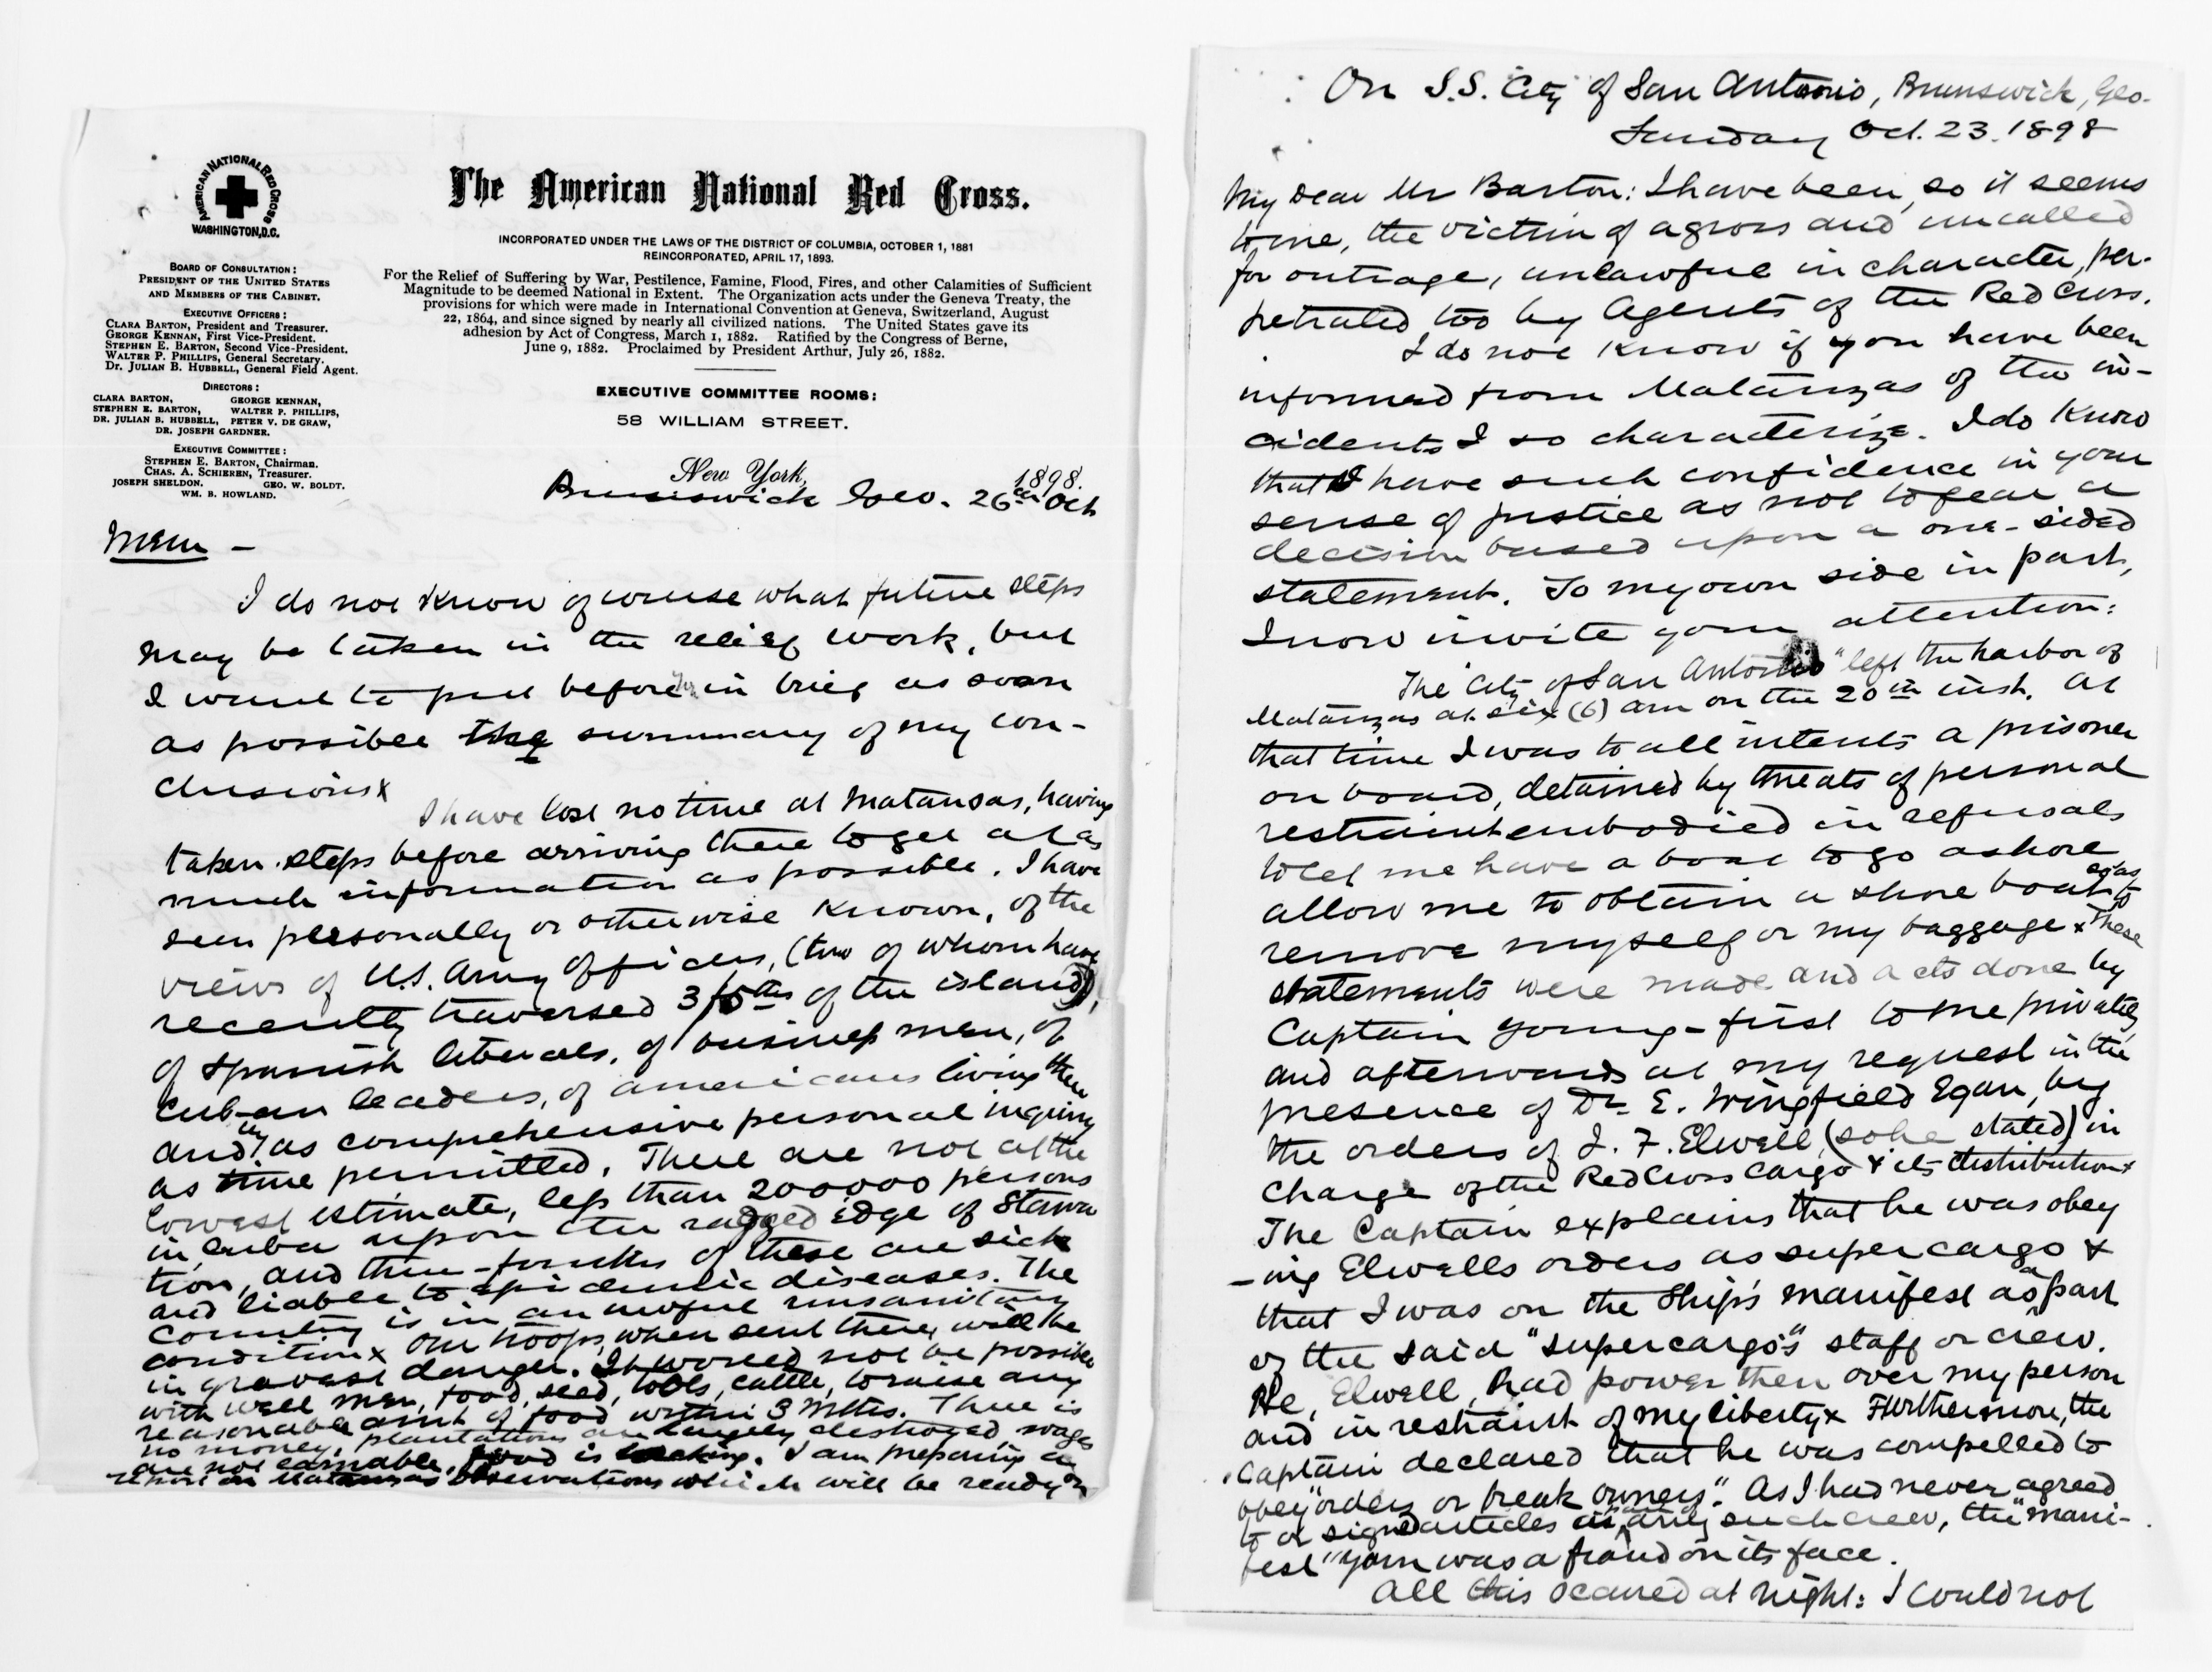 AMERICAN NATIONAL RED CROSS
WASHINGTON, D.C.
The American National Red Cross.
INCORPORATED UNDER THE LAWS OF THE DISTRICT OF COLUMBIA, OCTOBER 1, 1881
REINCORPORATED, APRIL 17, 1893.
For the Relief of Suffering by War, Pestilence, Famine, Flood, Fires, and other Calamities of Sufficient
Magnitude to be deemed National in Extent. The Organization acts under the Geneva Treaty, the
provisions for which were made in International Convention at Geneva, Switzerland, August
22, 1864, and since signed by nearly all civilized nations. The United States gave its
adhesion by Act of Congress, March 1, 1882. Ratified by the Congress of Berne,
June 9, 1882. Proclaimed by President Arthur, July 26, 1882.
BOARD OF CONSULTATION:
PRESIDENT OF THE UNITED STATES
AND MEMBERS OF THE CABINET.
EXECUTIVE OFFICERS:
CLARA BARTON, President and Treasurer.
GEORGE KENNAN, First Vice-President.
STEPHEN E. BARTON, Second Vice-President.
WALTER P. PHILLIPS, General Secretary.
Dr. JULIAN B. HUBBELL, General Field Agent.
DIRECTORS:
CLARA BARTON, GEORGE KENNAN,
STEPHEN E. BARTON, WALTER P. PHILLIPS,
DR. JULIAN B. HUBBELL, PETER V. DE GRAW,
DR. JOSEPH GARDNER.
EXECUTIVE COMMITTEE:
STEPHEN E. BARTON, Chairman.
CHAS. A. SCHIEREN, Treasurer.
JOSEPH SHELDON. GEO. W. BOLDT.
WM. B. HOWLAND.
EXECUTIVE COMMITTEE ROOMS:
58 WILLIAM STREET.
New York, 1898.
Brunswick Geo. 26th Oct
Mem —
I do not know of course what future steps
may be taken in the relief work, but
I want to put before you in brief as soon
as possible the summary of my con-
clusions x
I have lost no time at Matansas, having
taken steps before arriving there to get at as
much information as possible. I have
seen personally or otherwise known, of the
views of U.S. Army Officers, (two of whom have
recently traversed 3/5ths of the island),
of Spanish liberals, of business men, of
Cuban leaders, of Americans living there
and by as comprehensive personal inquiry
as time permitted. There are not at the
lowest estimate, less than 200000 persons
in Cuba upon the ragged edge of Starva
tion, and three-fourths of these are sick
and liable to epidemic diseases. The
country is in an awful unsanitary
condition x Our troops, when sent there, will be
in gravest danger. It would not be possible
with well men, food, seed, tools, cattle, to raise any
reasonable amt of food within 3 mths. There is
no money, plantations are largely destroyed, wages
are not earnable, food is lacking. I am preparing a
report on Matansas observations which will be ready on
On S.S. City of San Antonio, Brunswick, Geo.
Sunday Oct. 23. 1898
My Dear Mr Barton: I have been, so it seems
to me, the victim of a gross and uncalled
for outrage, unlawful in character, per-
petrated too by Agents of the Red Cross.
I do not know if you have been
informed from Matanzas of the in-
cidents I so characterize. I do know
that I have such confidence in your
sense of justice as not to fear a
decision based upon a one-sided
statement. To my own side in part,
I now invite your attention:
The "City of San Antonio" left the harbor of
Matanzas at six (6) am on the 20th inst. At
that time I was to all intents a prisoner
on board, detained by threats of personal
restraint embodied in refusals
to let me have a boat to go ashore
allow me to obtain a shore boat so as to
remove myself or my baggage x These
statements were made and acts done by
Captain Young - first to me privately
and afterwards at my request in the
presence of Dr E. Wingfield Egan, by
the orders of J. F. Elwell, (so he stated) in
charge of the Red Cross Cargo & its distribution x
The Captain explains that he was obey
-ing Elwells orders as supercargo &
that I was on the Ship's manifest as a part
of the said "supercargo's" staff or crew.
He, Elwell, had power then over my person
and in restraint of my liberty x Furthermore, the
Captain declared that he was compelled to
obey "orders or break owners". As I had never agreed
to or signed articles as part of any such crew, the "mani-
fest" yarn was a fraud on its face.
All this occured at night: I could not